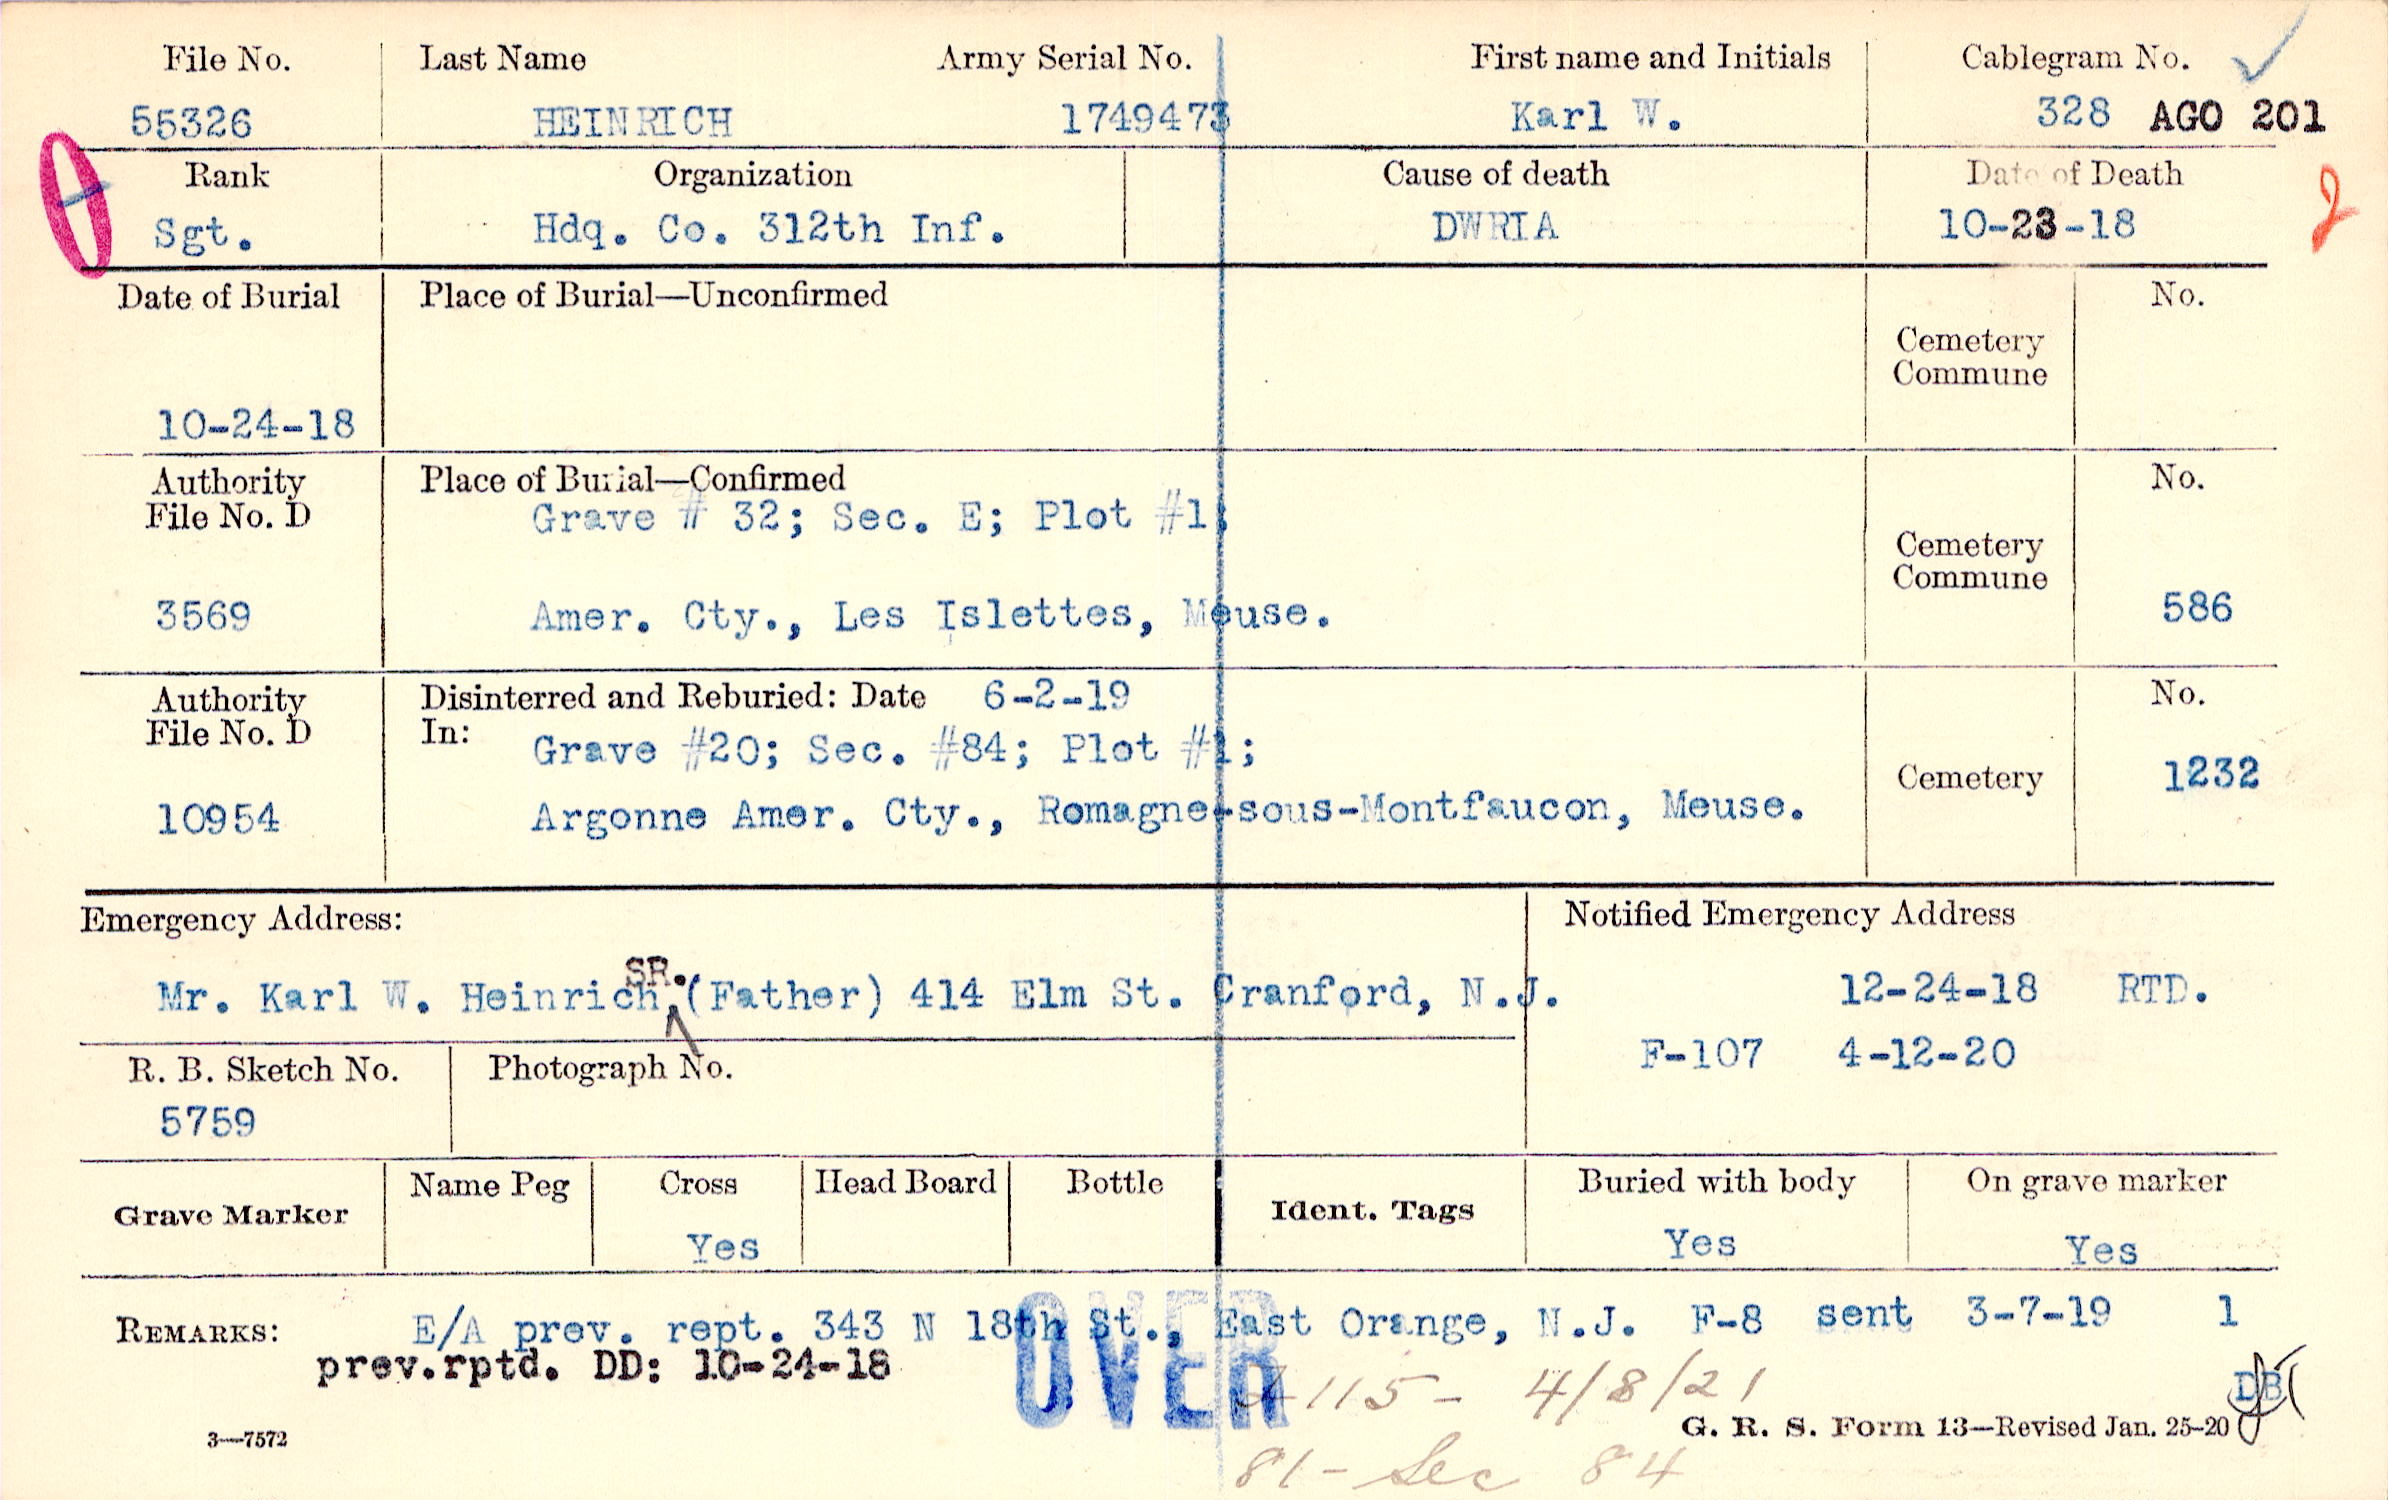 File No. Last Name Army Serial No. First name and Initials Cablegram No.
55326 HEINRICH 1749473 Karl W. 328 AGO 201
Rank Organization Cause of death Date of Death
Sgt. Hdq. Co. 312th Inf. DWRIA 10-23-18
2
Date of Burial Place of Burial—Unconfirmed No.
Cemetery
Commune
10-24-18
Authority Place of Burial—Confirmed No.
File No. D Grave # 32; Sec. E; Plot #1;
Cemetery
Commune
3569 Amer. Cty., Les Islettes, Meuse. 586
Authority Disinterred and Reburied: Date 6-2-19 No.
File No. D In: Grave #20; Sec. #84; Plot #1;
Cemetery 1232
10954 Argonne Amer. Cty., Romagne-sous-Montfaucon, Meuse.
Emergency Address: Notified Emergency Address
SR.
Mr. Karl W. Heinrich,(Father) 414 Elm St. Cranford, N.J. 12-24-18 RTD.
F-107 4-12-20
R. B. Sketch No. Photograph No.
5759
Grave Marker Name Peg Cross Head Board Bottle Ident. Tags Buried with body On grave marker
Yes Yes Yes
REMARKS: E/A prev. rept. 343 N 18th St., East Orange, N.J. F-8 sent 3-7-19 1
prev.rptd. DD: 10-24-18
OVER
115- 4/8/21
DB
3—7572 G. R. S. Form 13—Revised Jan. 25-20
81- Sec 84